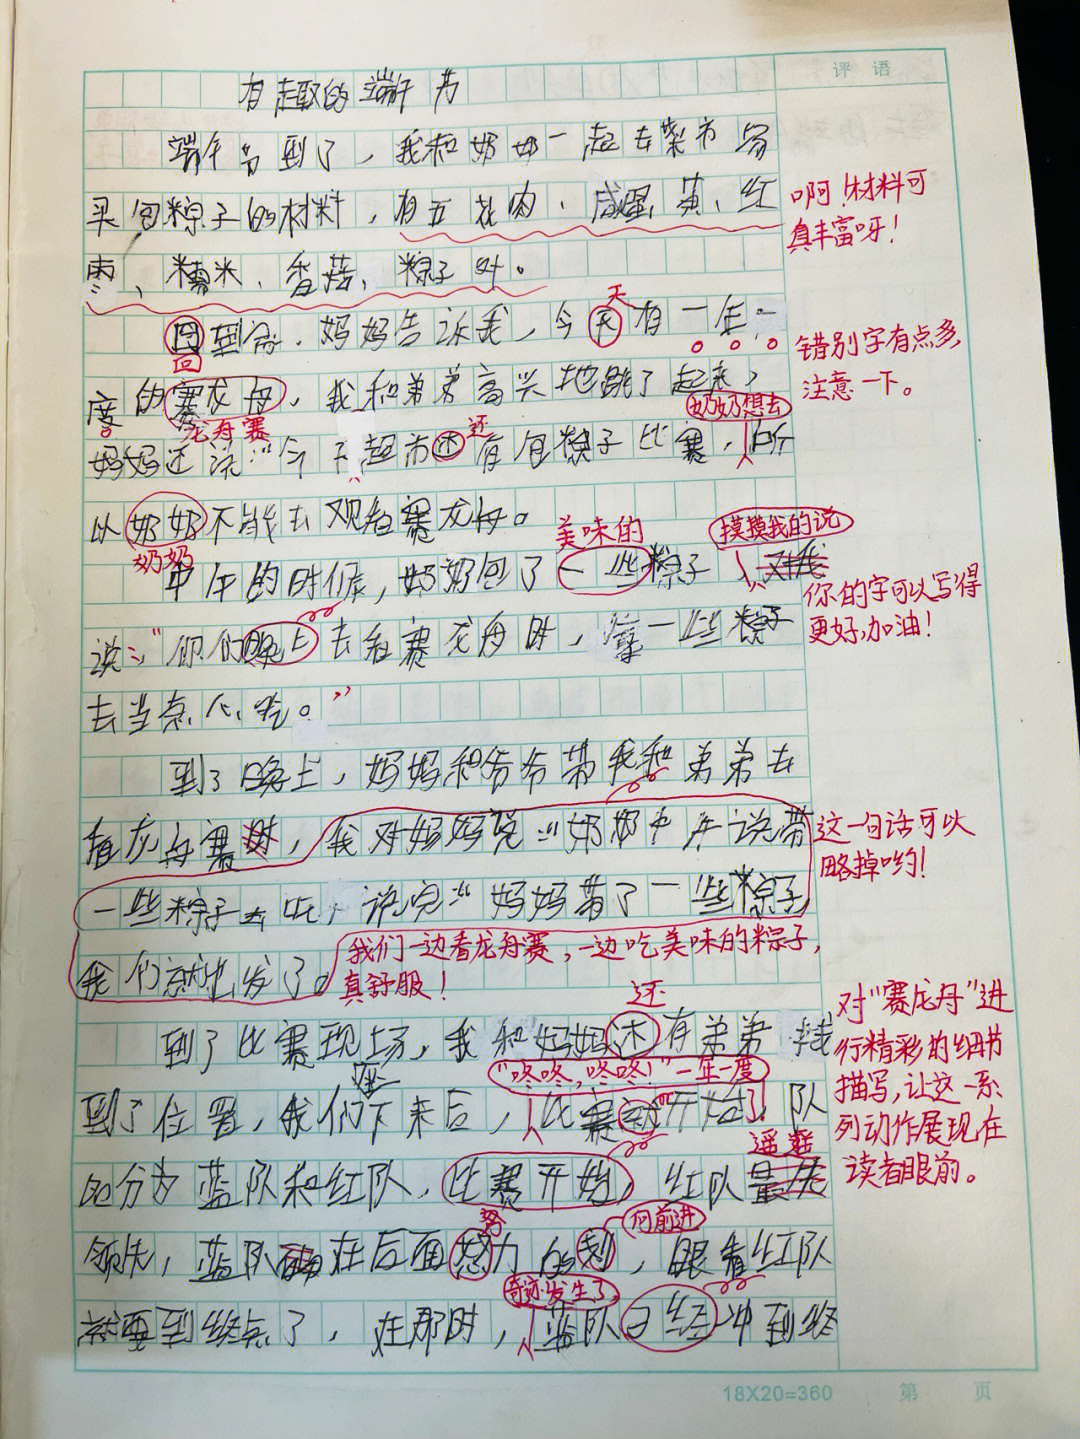 评语
有趣的端午节
端午节到了，我和奶奶一起去菜市场
买包粽子的材料，有五花肉、咸蛋黄、红
枣、糯米、香菇、粽子叶。
啊！材料可
真丰富呀！
到家，妈妈告诉我，今天有一年一
天
回
错别字有点多，
注意一下。
度的赛龙舟，我和弟弟高兴地跳了起来，
龙舟赛
奶奶想去
妈妈还说：“今天超市还有包粽子比赛，所
还
以奶奶不能去观看赛龙舟。
奶奶
美味的
摸摸我的说
中午的时候，奶奶包了一些粽子，对我
你的字可以写得
更好，加油！
说：“你们晚上去看赛龙舟时，拿一些粽子
去当点心吃。”
到了晚上，妈妈和爷爷带我和弟弟去
看龙舟赛时，我对妈妈说：“奶奶中午说带
这一句话可以
略掉哟！
一些粽子去吃，说完”妈妈带了一些粽子
我们就出发了。
我们一边看龙舟赛，一边吃美味的粽子，
真舒服！
还
到了比赛现场，我和妈妈还有弟弟找
对“赛龙舟”进
行精彩的细节
描写，让这一系
列动作展现在
读者眼前。
“咚咚，咚咚！”一年一度
到了位置，我们坐下来后，比赛就开始了，队
遥遥
也分为蓝队和红队，比赛开始，红队最先
努
向前进
领先，蓝队在后面努力的划，眼看红队
奇迹发生了，
就要到终点了，在那时，蓝队已经冲到终
18X20=360
第 页